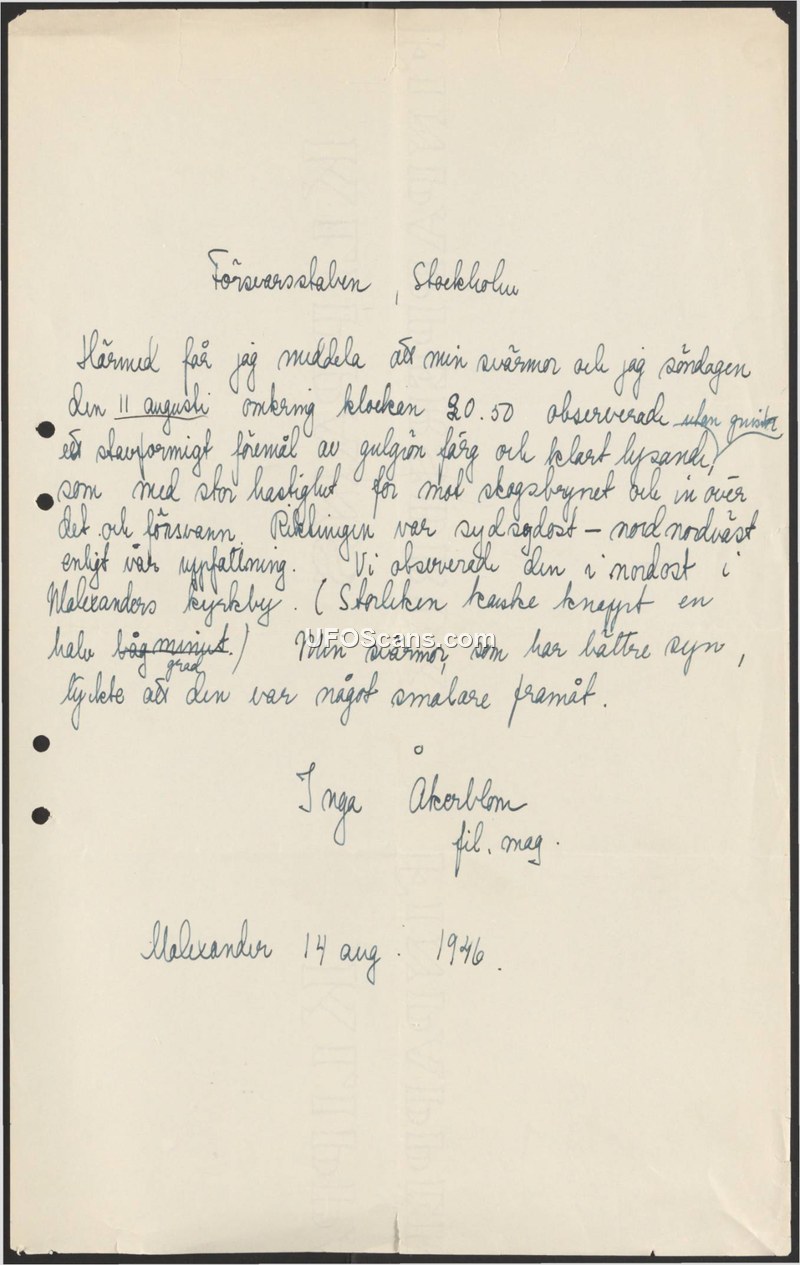 Försvarsstaben, Stockholm
Härmed får jag meddela att min svärmor och jag söndagen
den 11 augusti omkring klockan 20.50 observerade utan gnistor
ett stavformigt föremål av gulgrön färg och klart lysande,
som med stor hastighet för mot skogsbrynet och in över
det och försvann. Riktningen var sydsydost – nordnordväst
enligt vår uppfattning. Vi observerade den i nordost i
Malexanders kyrkby. (Storleken kanske knappt en
halv bågminut.) Min svärmor, som har bättre syn,
grad
tyckte att den var något smalare framåt.
UFOScans.com
Inga Åkerblom
fil. mag.
Malexander 14 aug. 1946.